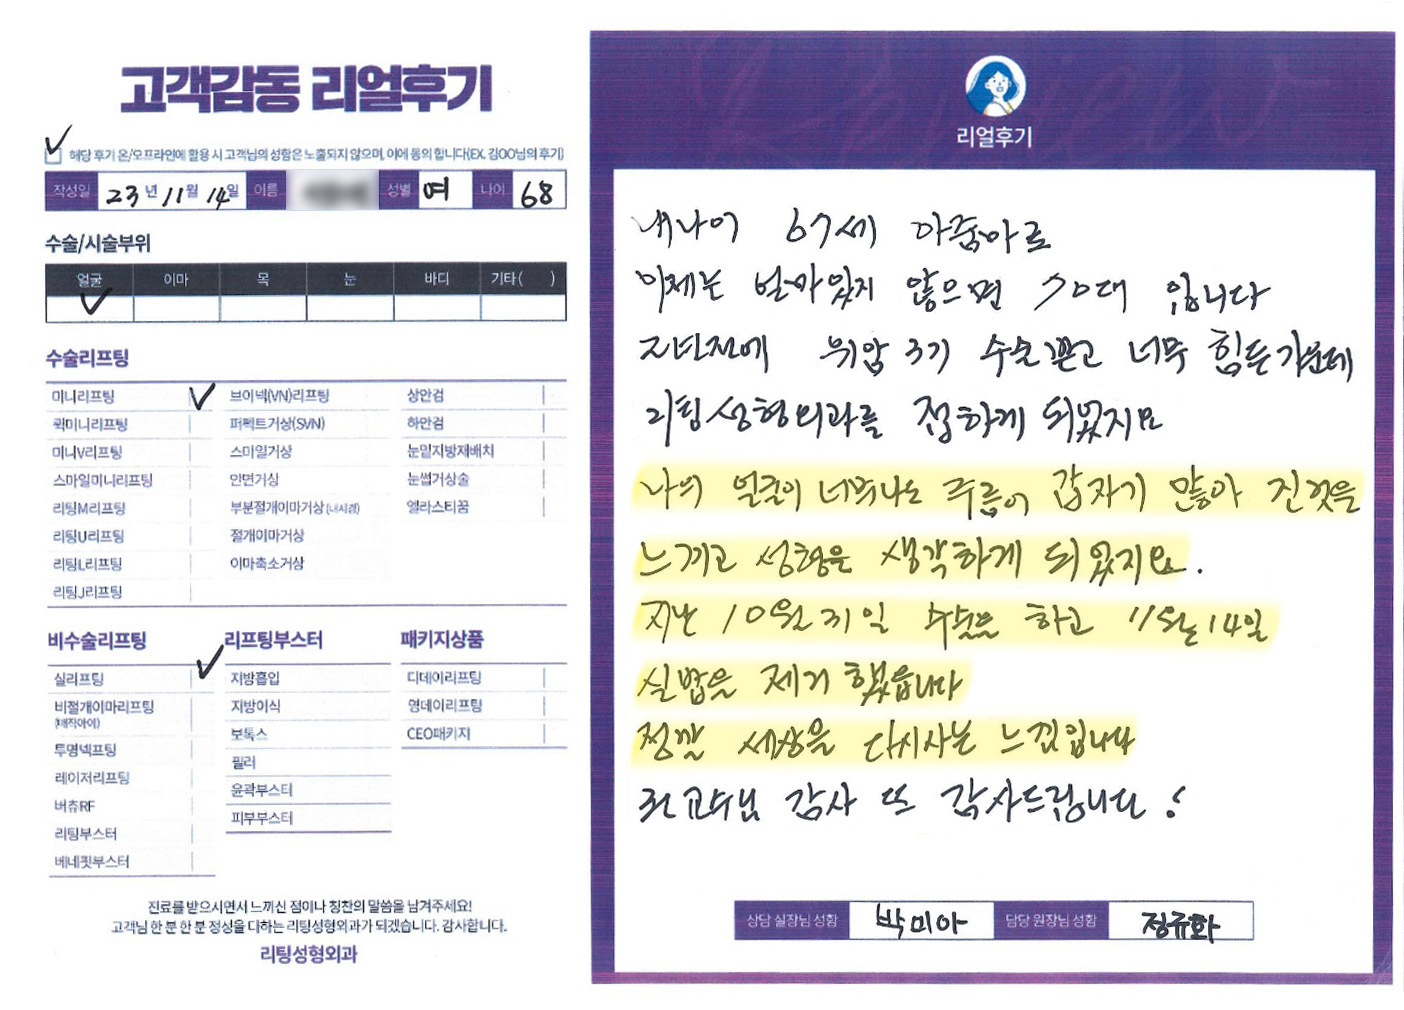 고객감동 리얼후기
해당 후기 온/오프라인에 활용 시 고객님의 성함은 노출되지 않으며, 이에 동의 합니다(EX. 김OO님의 후기)
작성일 23년 11월 14일 이름 성별 여 나이 68
수술/시술부위
얼굴 이마 목 눈 바디 기타( )
수술리프팅
미니리프팅 브이넥(VN)리프팅 상안검
퀵미니리프팅 퍼펙트거상(SVN) 하안검
미니V리프팅 스마일거상 눈밑지방재배치
스마일미니리프팅 안면거상 눈썹거상술
리팅M리프팅 부분절개이마거상(내시경) 엘라스티꿈
리팅U리프팅 절개이마거상
리팅L리프팅 이마축소거상
리팅J리프팅
비수술리프팅 리프팅부스터 패키지상품
실리프팅 지방흡입 디데이리프팅
비절개이마리프팅 지방이식 명데이리프팅
(매직아이) 보톡스 CEO패키지
투명넥프팅 필러
레이저리프팅 윤곽부스터
버츄RF 피부부스터
리팅부스터
베네핏부스터
진료를 받으시면서 느끼신 점이나 칭찬의 말씀을 남겨주세요!
고객님 한 분 한 분 정성을 다하는 리팅성형외과가 되겠습니다. 감사합니다.
리팅성형외과
리얼후기
내나이 67세 아줌마로
이제는 얼마있지 않으면 70대 입니다
지난전에 위암 3기 수술받고 너무 힘든가운데
리팅성형외과를 접하게 되었지요
나의 얼굴이 너무나도 주름이 갑자기 많아 진것을
느끼고 성형을 생각하게 되었지요.
지난 10월 31일 수술을 하고 11월 14일
실밥을 제거 했습니다
정말 세상을 다시사는 느낌입니다
교수님 감사 또 감사드립니다!
상담 실장님 성함 박미아 담당 원장님 성함 정규화